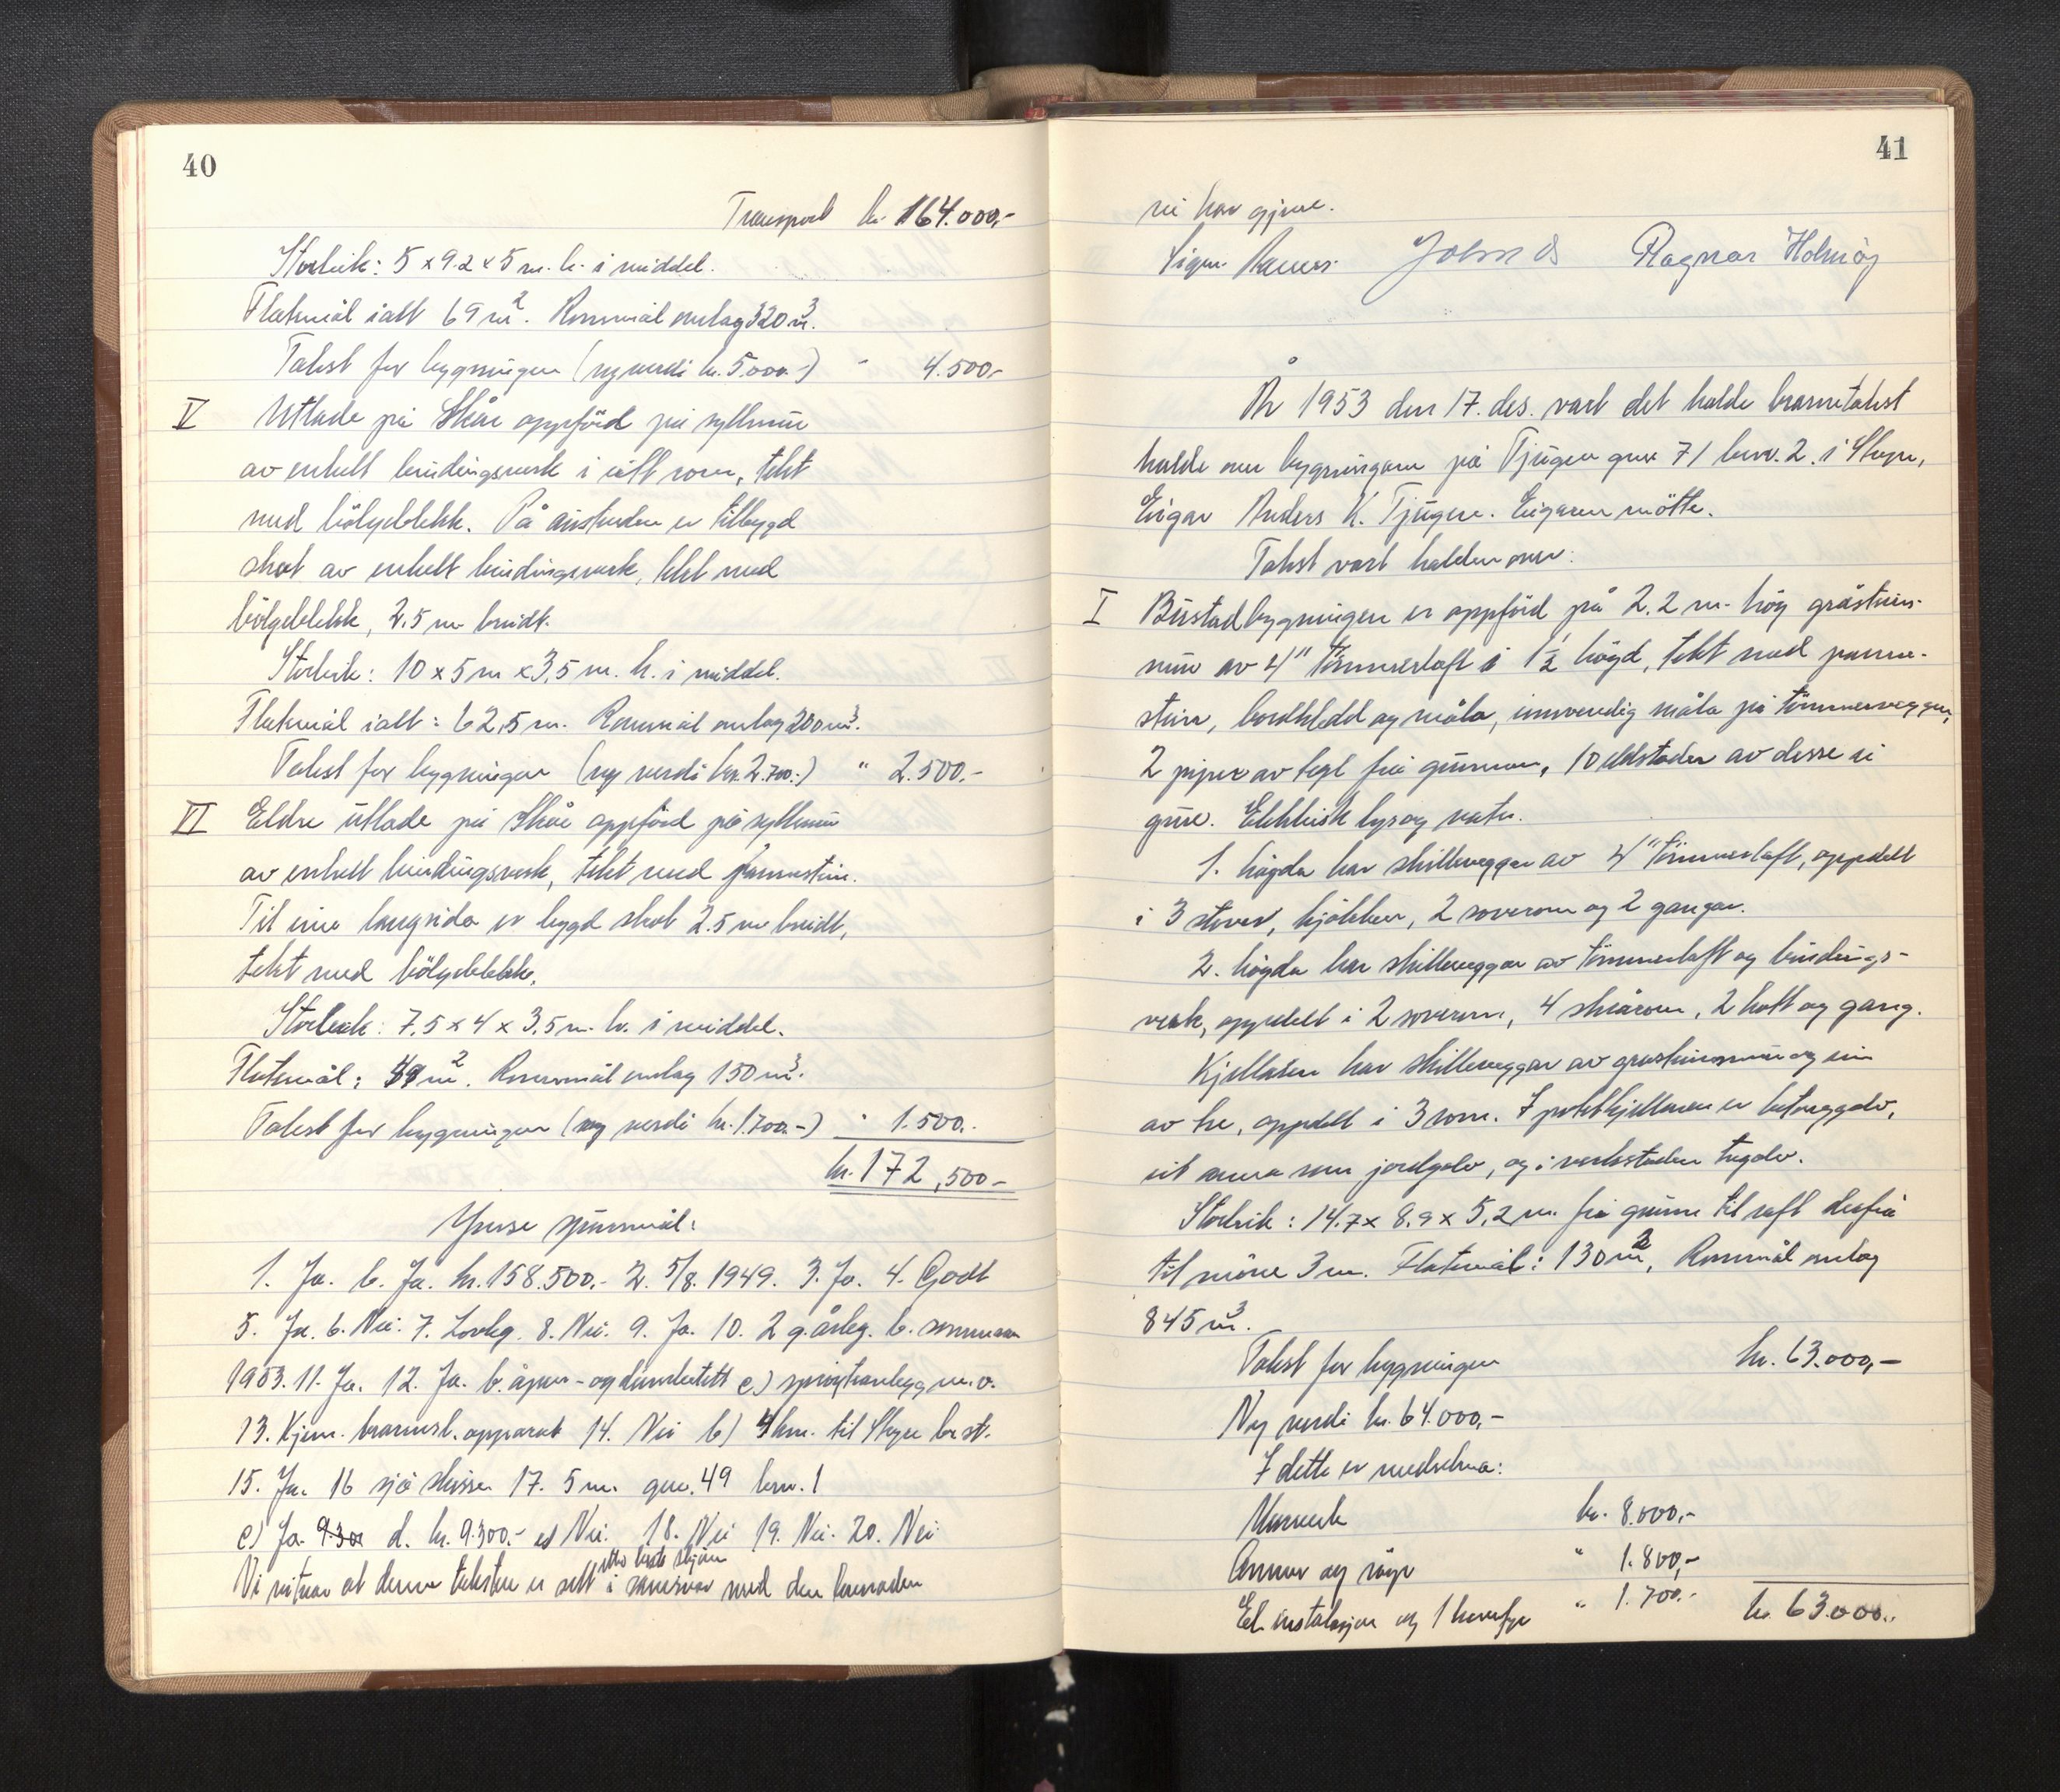 40
Transport kr. 164.000,-
Storleik: 5 x 9.2 x 5 m. h. i middel.
Flatemål ialt 69 m². Rommål omlag 320 m³.
Takst for bygningen (ny verdi kr. 5.000.-) " 4.500,-
V Utlade på Skåe oppförd på syllmur
av enkelt bindingsverk i eitt rom, tekt
med bölgeblekk. På austenden er tilbygd
skot av enkelt bindingsverk, tekt med
bölgeblekk, 2.5 m breidt.
Storleik: 10 x 5 m x 3,5 m. h. i middel.
Flatemål ialt: 62,5 m. Rommål omlag 200 m³.
Takst for bygningen (ny verdi kr. 2.700.-) " 2.500.-
VI Eldre utlade på Skåe oppförd på syllmur
av enkelt bindingsverk, tekt med pannestein.
Til eine langsida er bygd skot 2.5 m breidt,
tekt med bölgeblekk.
Storleik: 7,5 x 4 x 3,5 m. h. i middel.
Flatemål: 49 m². Rommål omlag 150 m³.
Takst for bygningen (ny verdi kr. 1.700.-) " 1.500.-
kr. 172,500-
Ymse spursmål:
1. Ja. b. Ja. kr. 158.500.- 2. 5/8. 1949. 3. Ja. 4. Godt
5. Ja. 6. Nei. 7. Lovleg. 8. Nei. 9. Ja. 10. 2 g. årleg. b. sommaren
1953. 11. Ja. 12. Ja. b. åpen- og c.) m.v.
13. Kjem. brannsl. apparat 14. Nei b) 4 km. til Stryn br.st.
15. Ja. 16 sjå skisse 17. 5 m. gnr. 49 bnr. 1
c) Ja. 9.300 d. kr. 9.300.- e) Nei. 18. Nei 19. Nei. 20. Nei
etter beste skjön
Vi vitnar at denne taksten er sett i samsvar med den kunnaden
41
vi har gjeve.
Ragnar Holmöy
År 1953 den 17. des. vart det halde branntakst
halde over bygningane på Tjugen gnr 71 bnr. 2. i Stryn,
Eigar Anders K. Tjugen. Eigaren mötte.
Takst vart halden over:
I Bustadbygningen er oppförd på 2.2 m. hög gråsteins-
mur av 4" tömmerlaft i 1½ högd, tekt med panne-
stein, bordkledd og måla, innvendig måla på tömmerveggen,
2 piper av tegl frå grunnen, 10 eldstader av desse ei
grue. Elektrisk lys og vatn.
1. högda har skilleveggar av 4" tömmerlaft, oppdelt
i 3 stover, kjökken, 2 soverom og 2 gangar.
2. högda har skilleveggar av tömmerlaft og bindings-
verk, oppdelt i 2 soverom, 4 skrårom, 2 kott og gang.
Kjellaren har skilleveggar av gråsteinsmur og ein
av tre, oppdelt i 3 rom. I potetkjellaren er betonggolv,
eit anna rom jordgolv, og i verkstaden tregolv.
Storleik: 14.7 x 8.9 x 5,2 m. frå grunn til raft derfrå
til möne 3 m. Flatemål: 130 m², Rommål omlag
845 m³.
Takst for bygningen kr. 63.000,-
Ny verdi kr. 64.000,-
I dette er medrekna:
Murverk kr. 8.000,-
Omnar og röyr " 1.800,-
El. instalasjon og 1 komfyr " 1.700.- kr. 63.000.-